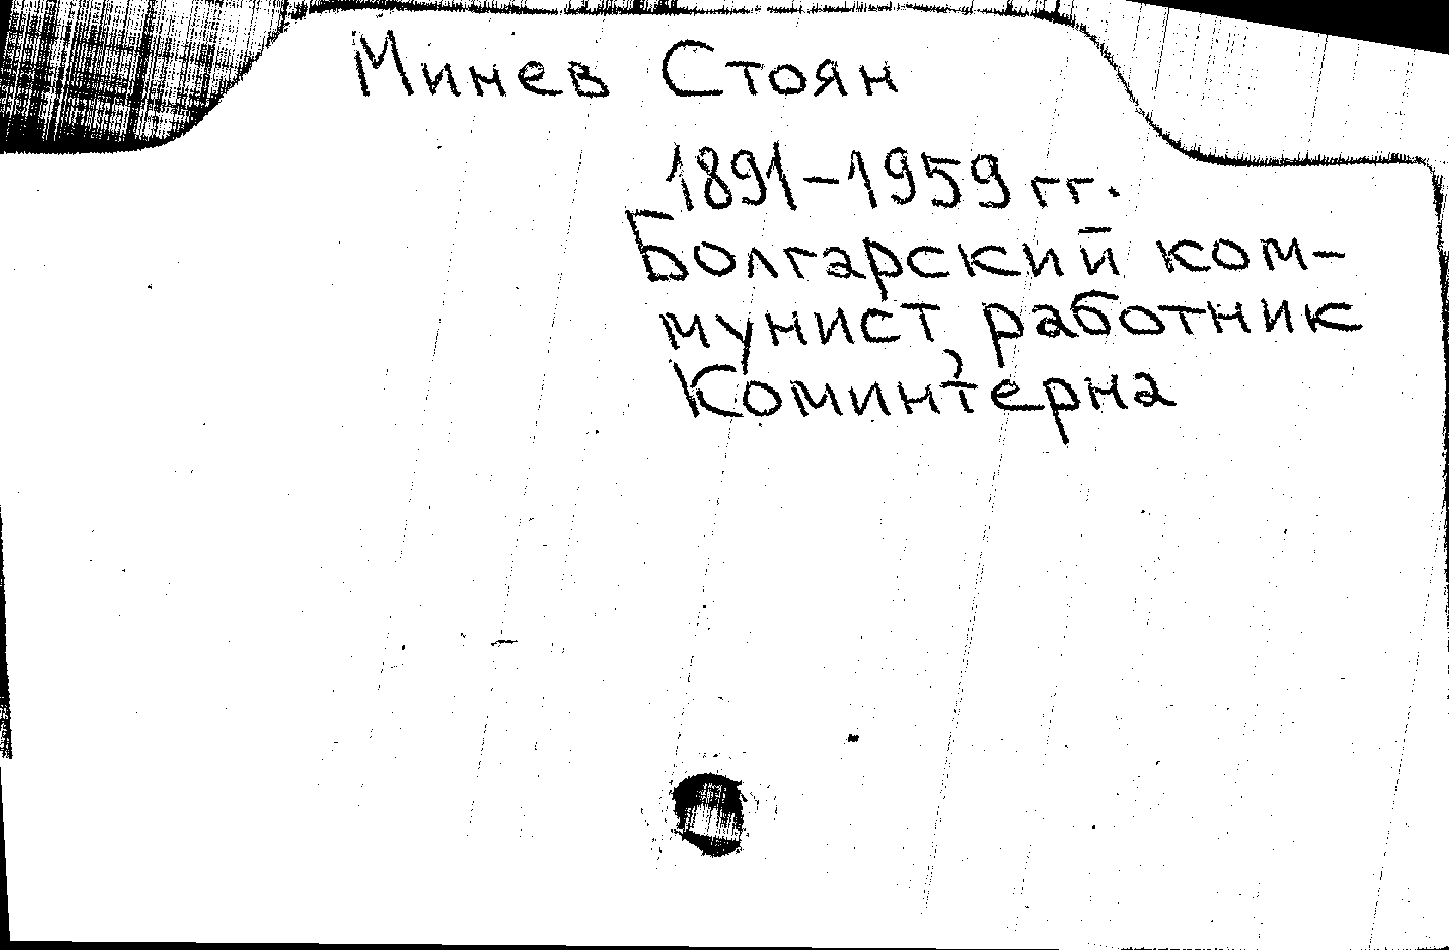 Минев Стоян
1891-1959 гг.
Болгарский ком-
мунист, работник
Коминтерна